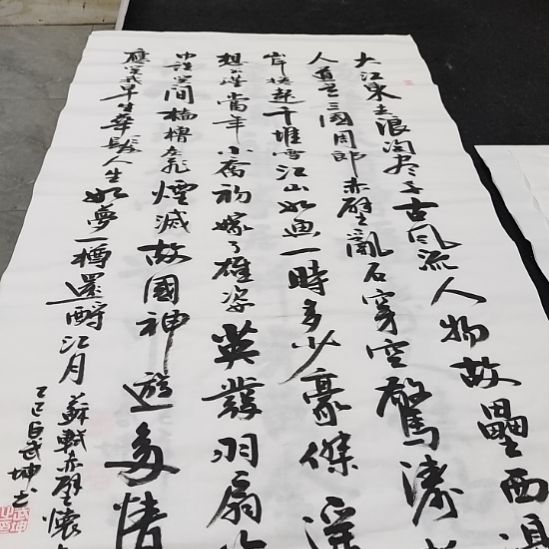 大江東去浪淘尽千古风流人物故壘西
人道是三國周郎赤壁亂石穿空驚濤
岸捲起千堆雪江山如画一時多少豪傑遥
想公瑾當年小喬初嫁了雄姿英發羽扇
巾談笑間檣櫓灰飛煙滅故國神遊多情
應笑我早生華髮人生如夢一樽還酹江月 蘇軾赤壁懷
乙巳 武坤书